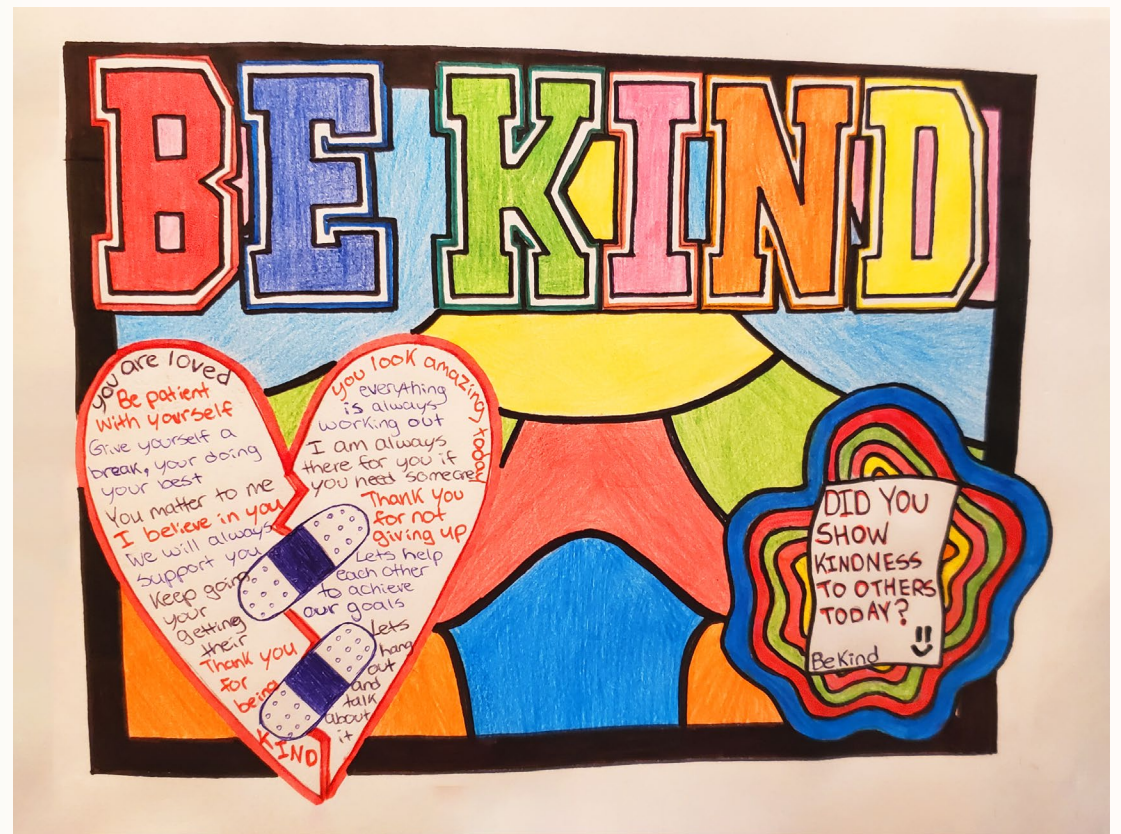 BE KIND
you are loved
Be patient
with yourself
Give yourself a
break, your doing
your best
You matter to me
I believe in you
We will always
support you
keep going
your
getting
their
Thank you
for
being
KIND
you look amazing today
everything
is always
working out
I am always
there for you if
you need someone
Thank you
for not
giving up
Lets help
each other
to achieve
our goals
Lets
hang
out
and
talk
about
it
DID YOU
SHOW
KINDNESS
TO OTHERS
TODAY?
Be Kind